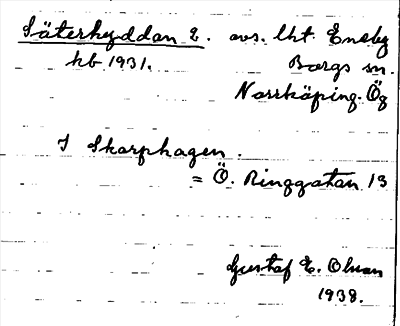 Säterhyddan 2. avs. lht. Eneby
hb 1931. Borgs sn.
Norrköping. Ög
I Skarphagen.
= Ö. Ringgatan 13
Gustaf E. Olsson
1938.